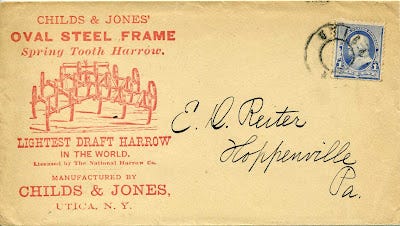 CHILDS & JONES'
OVAL STEEL FRAME
Spring Tooth Harrow.
LIGHTEST DRAFT HARROW
IN THE WORLD.
Licensed by The National Harrow Co.
MANUFACTURED BY
CHILDS & JONES,
UTICA, N. Y.
E. D. Reiter
Hoppenville
Pa.